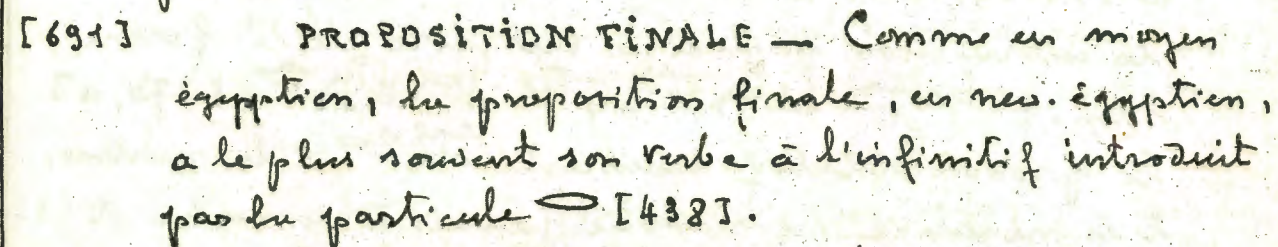 [691] PROPOSITION FINALE — Comme en moyen
égyptien, la proposition finale, en néo-égyptien,
a le plus souvent son verbe à l'infinitif introduit
par la particule 𓂋 [438].